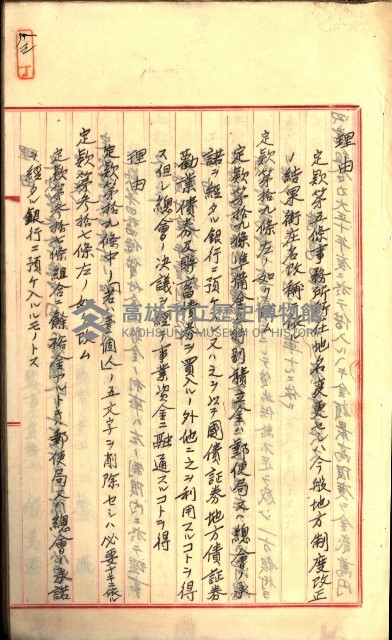 理由
定款第五條事務所所在地名変更セシハ今般地方制度改正
ノ結果街庄名改稱ニ依ル
定款第拾九條左ノ如ク改ム
定款第拾九條準備金及特別積立金ハ郵便局又ハ總會ノ承
諾ヲ経タル銀行ニ預ケ入レ又ハ之ヲ以テ國債証券地方債証券
勸業債券及貯蓄債券ヲ買入ルノ外他ニ之ヲ利用スルコトヲ得
ス但シ總會ノ決議ヲ経テ事業資金ニ融通スルコトヲ得
理由
定款第拾九條中「若ハ個人」ノ五文字ヲ削除セシハ必要ナキニ依ル
定款第参拾七條左ノ如ク改ム
定款第参拾七條組合ニ餘裕金アルトキハ郵便局又ハ總會ノ承諾
ヲ経タル銀行ニ預ケ入ルルモノトス
高雄市立歷史博物館
KAOHSIUNG MUSEUM OF HISTORY